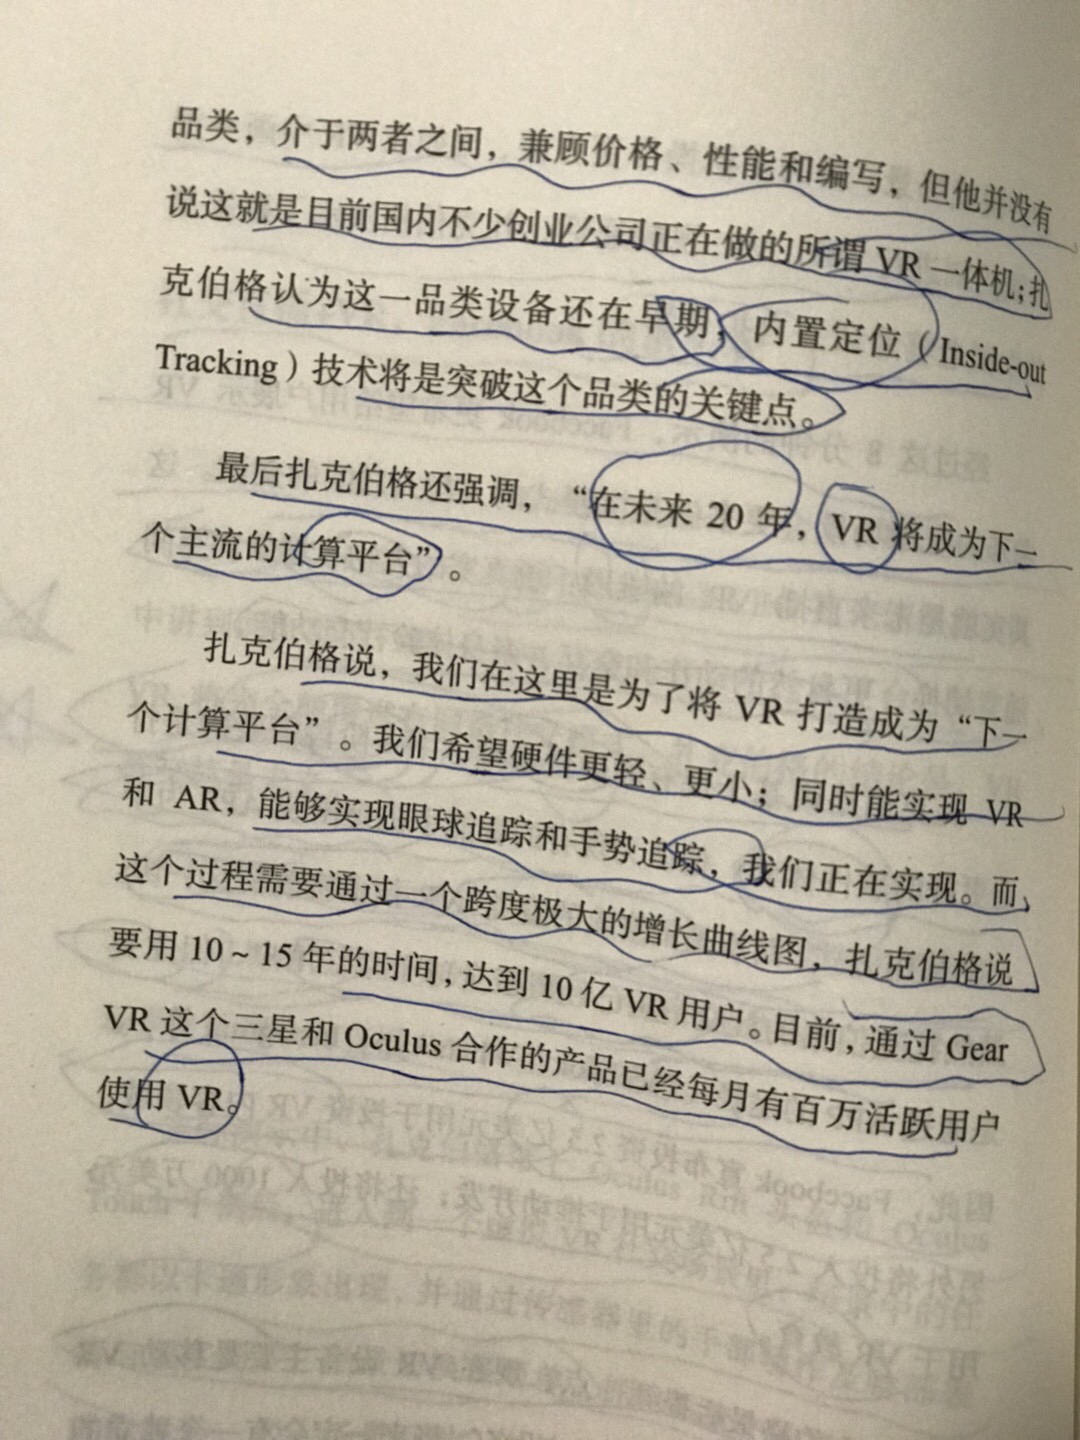 品类，介于两者之间，兼顾价格、性能和编写，但他并没有
说这就是目前国内不少创业公司正在做的所谓 VR 一体机；扎
克伯格认为这一品类设备还在早期，内置定位（Inside-out
Tracking）技术将是突破这个品类的关键点。
最后扎克伯格还强调，“在未来 20 年，VR 将成为下一
个主流的计算平台”。
扎克伯格说，我们在这里是为了将 VR 打造成为“下一
个计算平台”。我们希望硬件更轻、更小；同时能实现 VR
和 AR，能够实现眼球追踪和手势追踪，我们正在实现。而
这个过程需要通过一个跨度极大的增长曲线图，扎克伯格说
要用 10 ~ 15 年的时间，达到 10 亿 VR 用户。目前，通过 Gear
VR 这个三星和 Oculus 合作的产品已经每月有百万活跃用户
使用 VR。